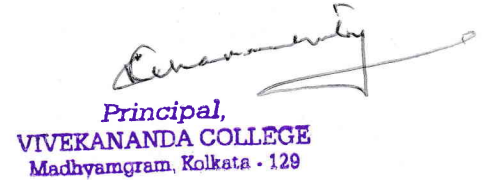 Principal,
VIVEKANANDA COLLEGE
Madhyamgram, Kolkata - 129